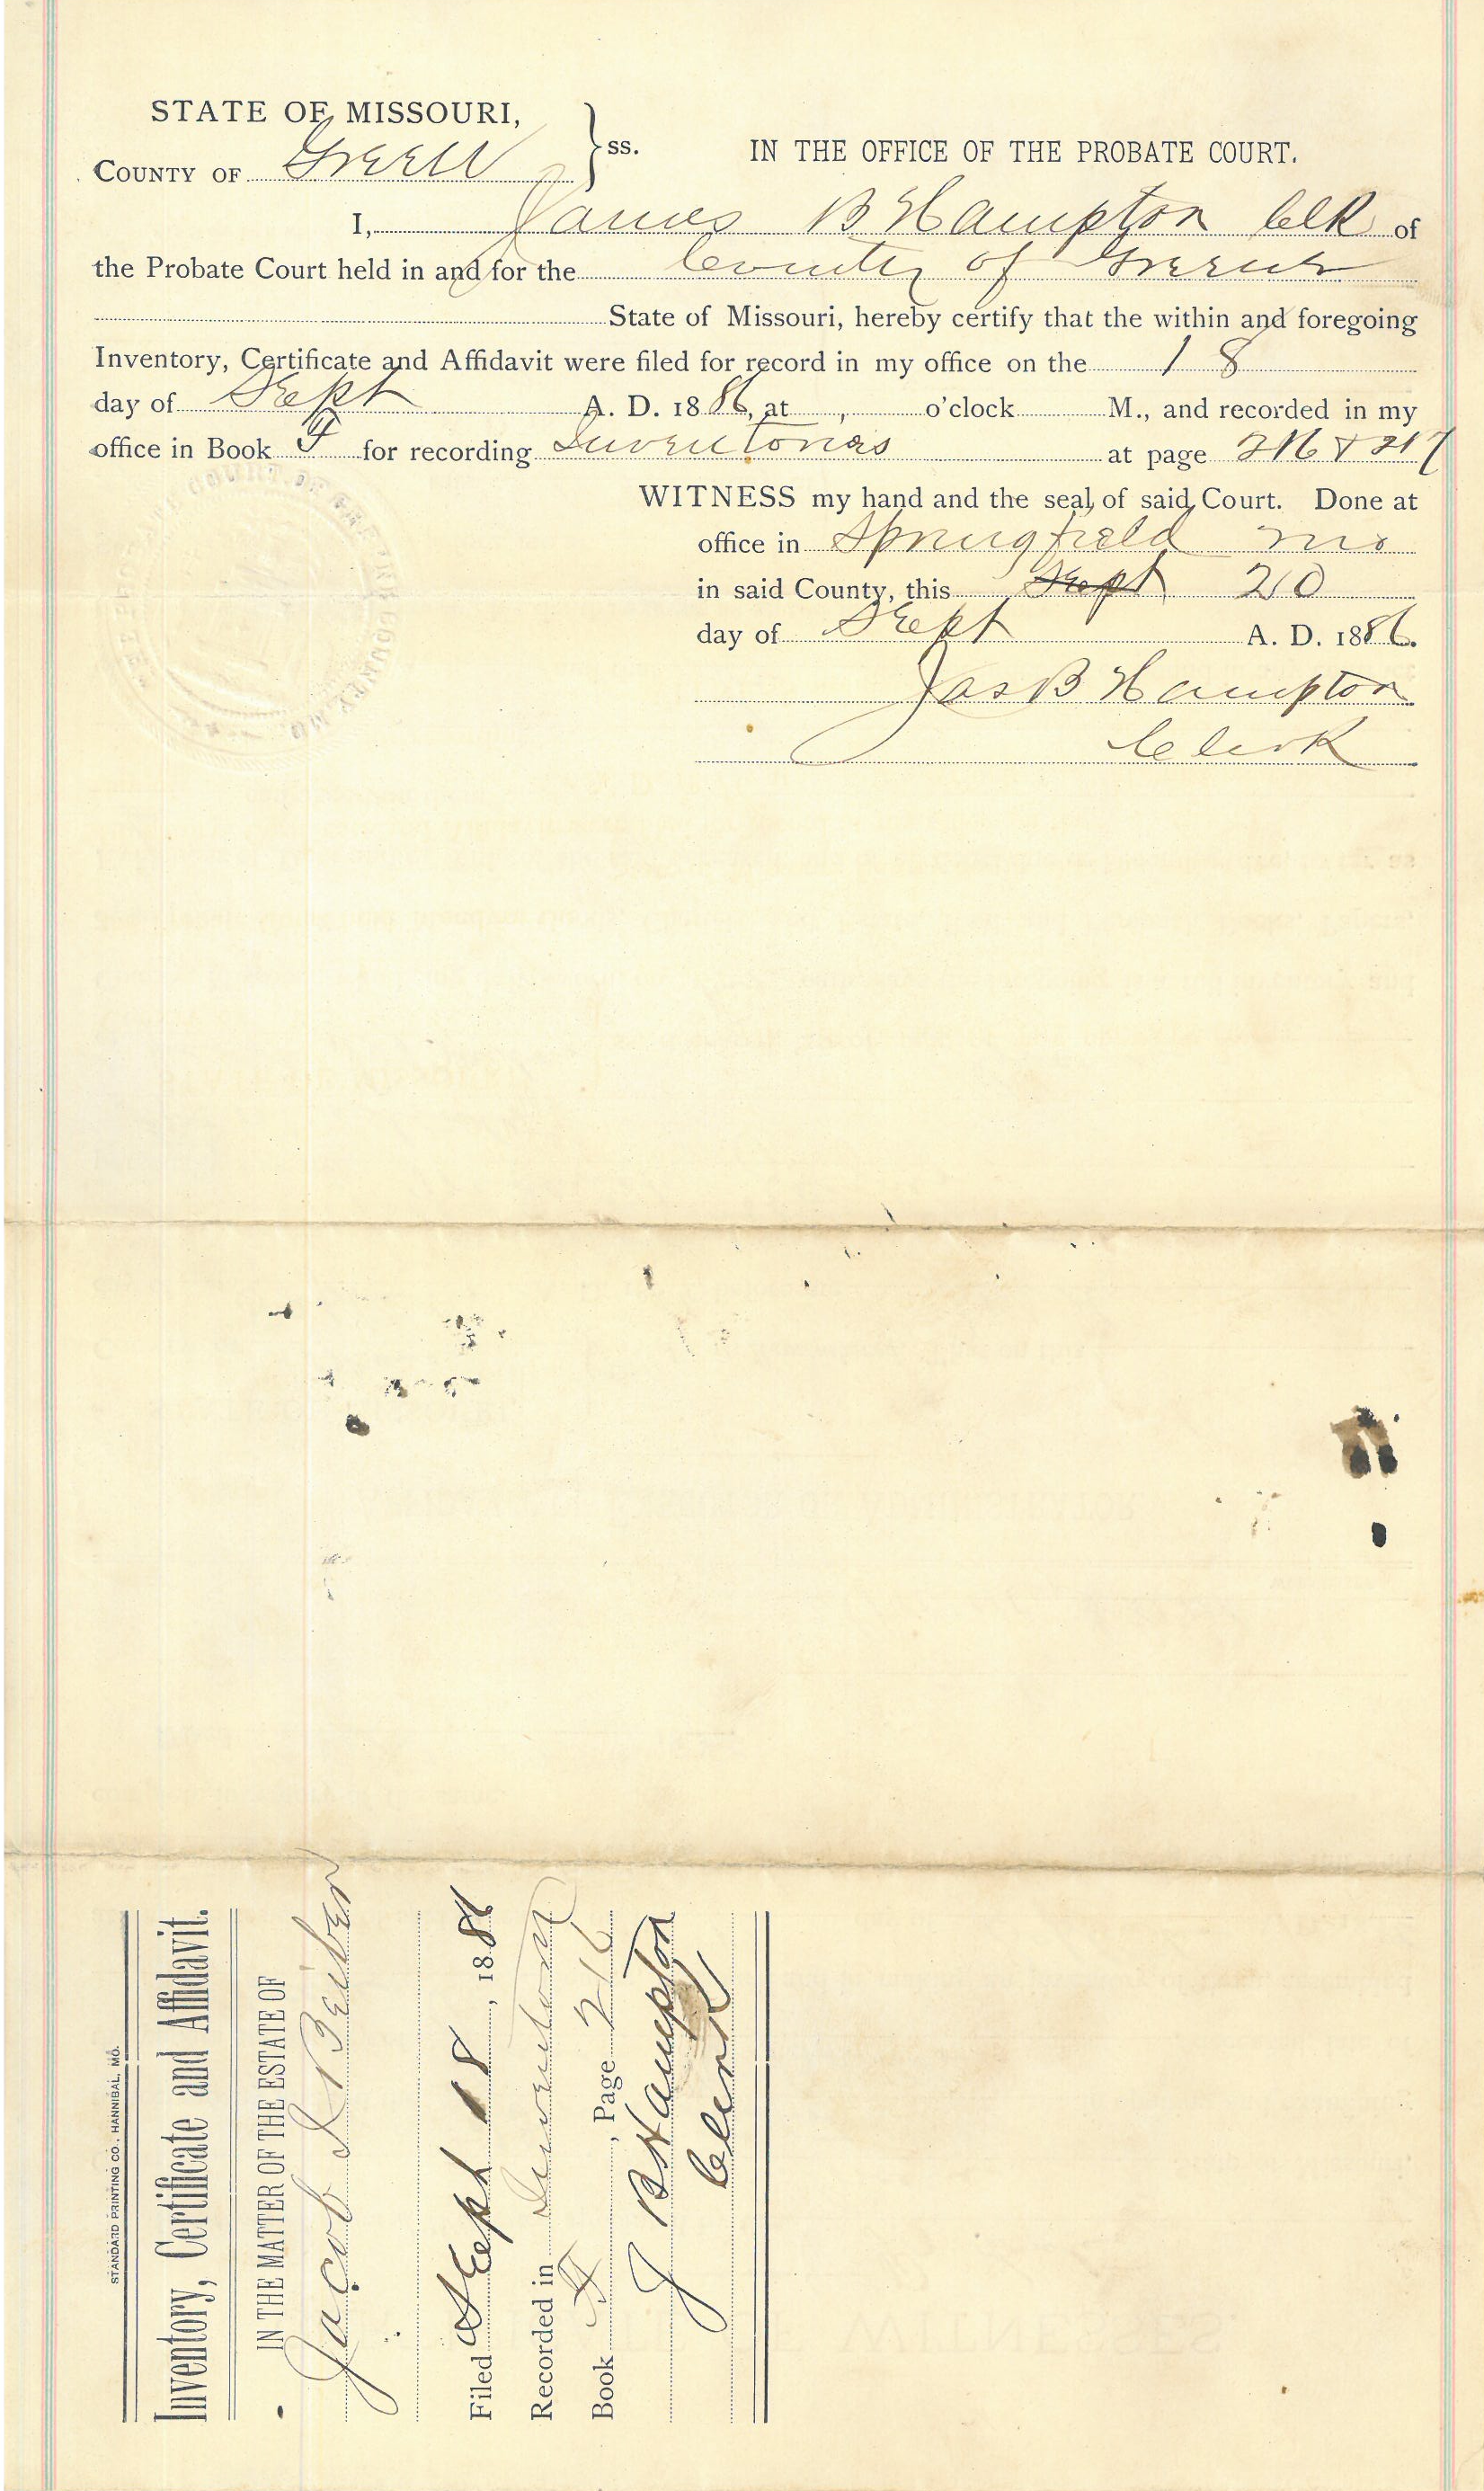 STATE OF MISSOURI,
COUNTY OF Green ss.
IN THE OFFICE OF THE PROBATE COURT.
I, James B Hampton Clk of
the Probate Court held in and for the County of Greene
State of Missouri, hereby certify that the within and foregoing
Inventory, Certificate and Affidavit were filed for record in my office on the 18
day of Sept A. D. 1886, at , o'clock M., and recorded in my
office in Book F for recording Inventories at page 216 & 217
WITNESS my hand and the seal of said Court. Done at
office in Springfield Mo
in said County, this Sept 20
day of Sept A. D. 1886.
Jas B Hampton
Clerk
STANDARD PRINTING CO., HANNIBAL, MO.
Inventory, Certificate and Affidavit.
IN THE MATTER OF THE ESTATE OF
Jacob I Beiber
Filed Sept 18, 1886
Recorded in Inventory
Book F, Page 216
J B Hampton
Clerk